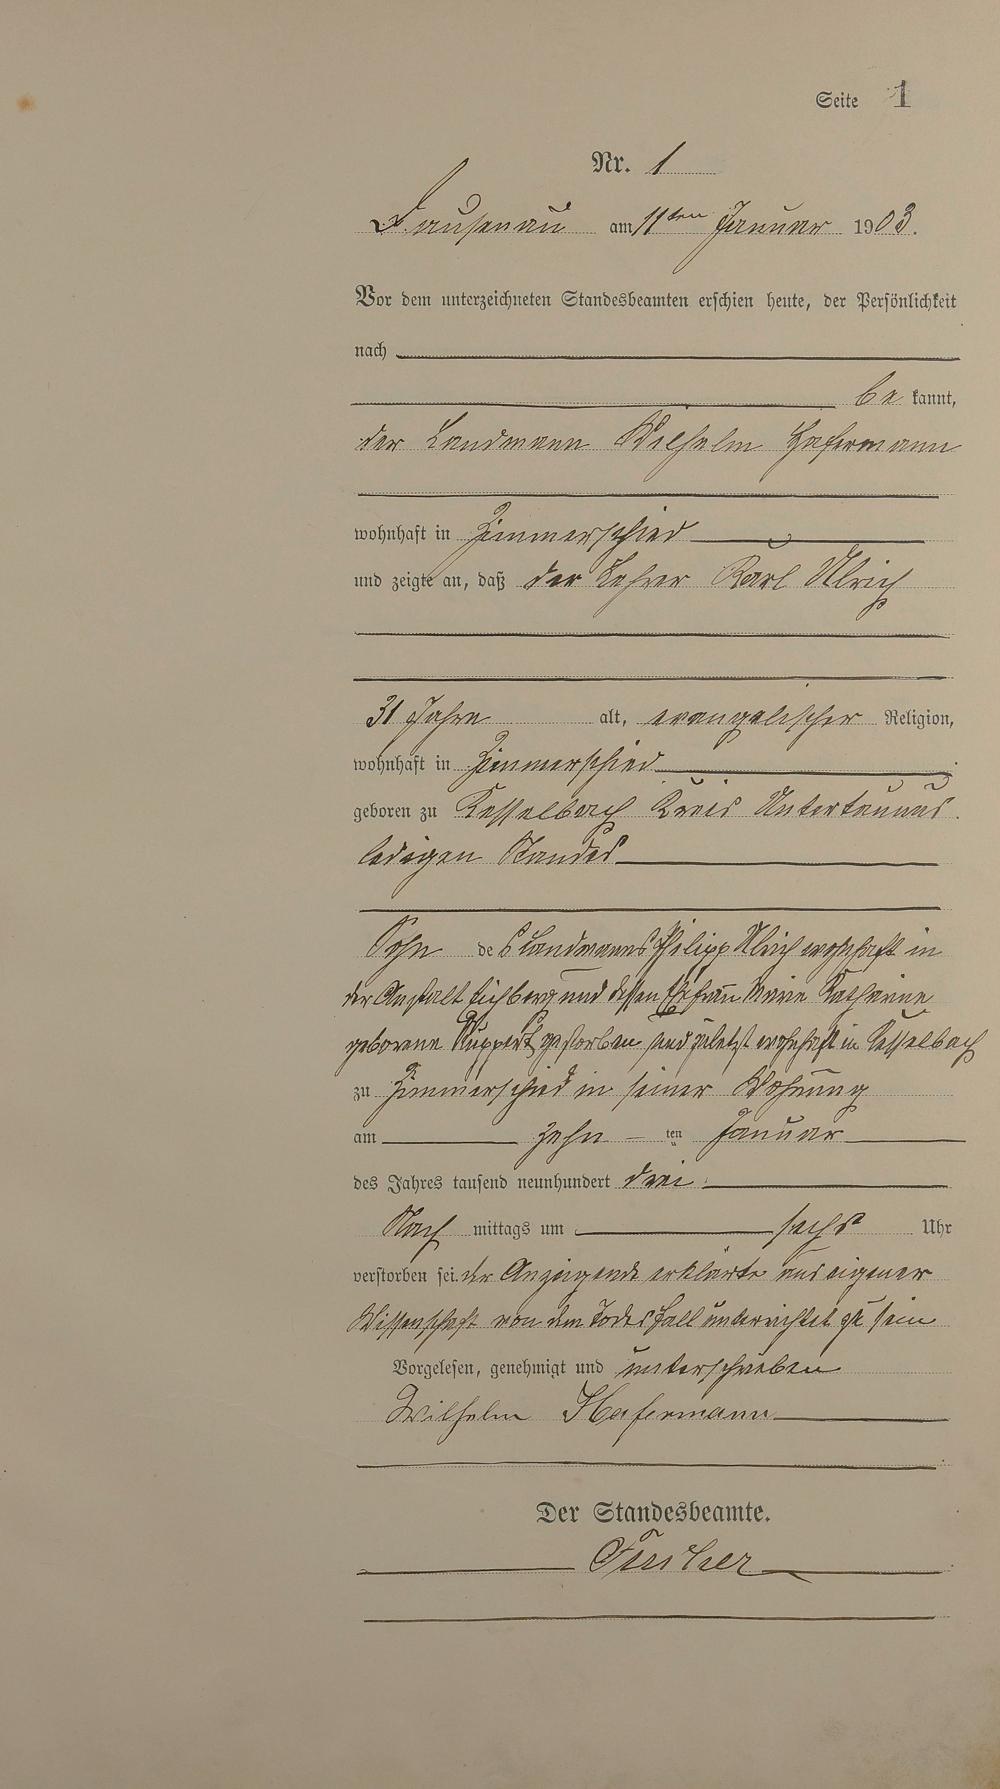 Seite 1
Nr. 1
Dausenau am 11ten Januar 1903.
Vor dem unterzeichneten Standesbeamten erschien heute, der Persönlichkeit
nach
be kannt,
der Landmann Wilhelm Hafermann
wohnhaft in Zimmerschied
und zeigte an, daß der Lehrer Karl Ulrich
31 Jahre alt, evangelischer Religion,
wohnhaft in Zimmerschied
geboren zu Kesselbach Kreis Untertaunus
ledigen Standes
Sohn des Landmanns Philipp Ulrich wohnhaft in
der Anstalt Eichberg und dessen Ehefrau Marie Katharine
geborene Ruppert gestorben und zuletzt wohnhaft in Kesselbach
zu Zimmerschied in seiner Wohnung
am zehn ten Januar
des Jahres tausend neunhundert drei
Nach mittags um sechs Uhr
verstorben sei. der Anzeigende erklärte aus eigener
Wissenschaft von dem Todesfall unterrichtet zu sein
Vorgelesen, genehmigt und unterschrieben
Wilhelm Hafermann
Der Standesbeamte.